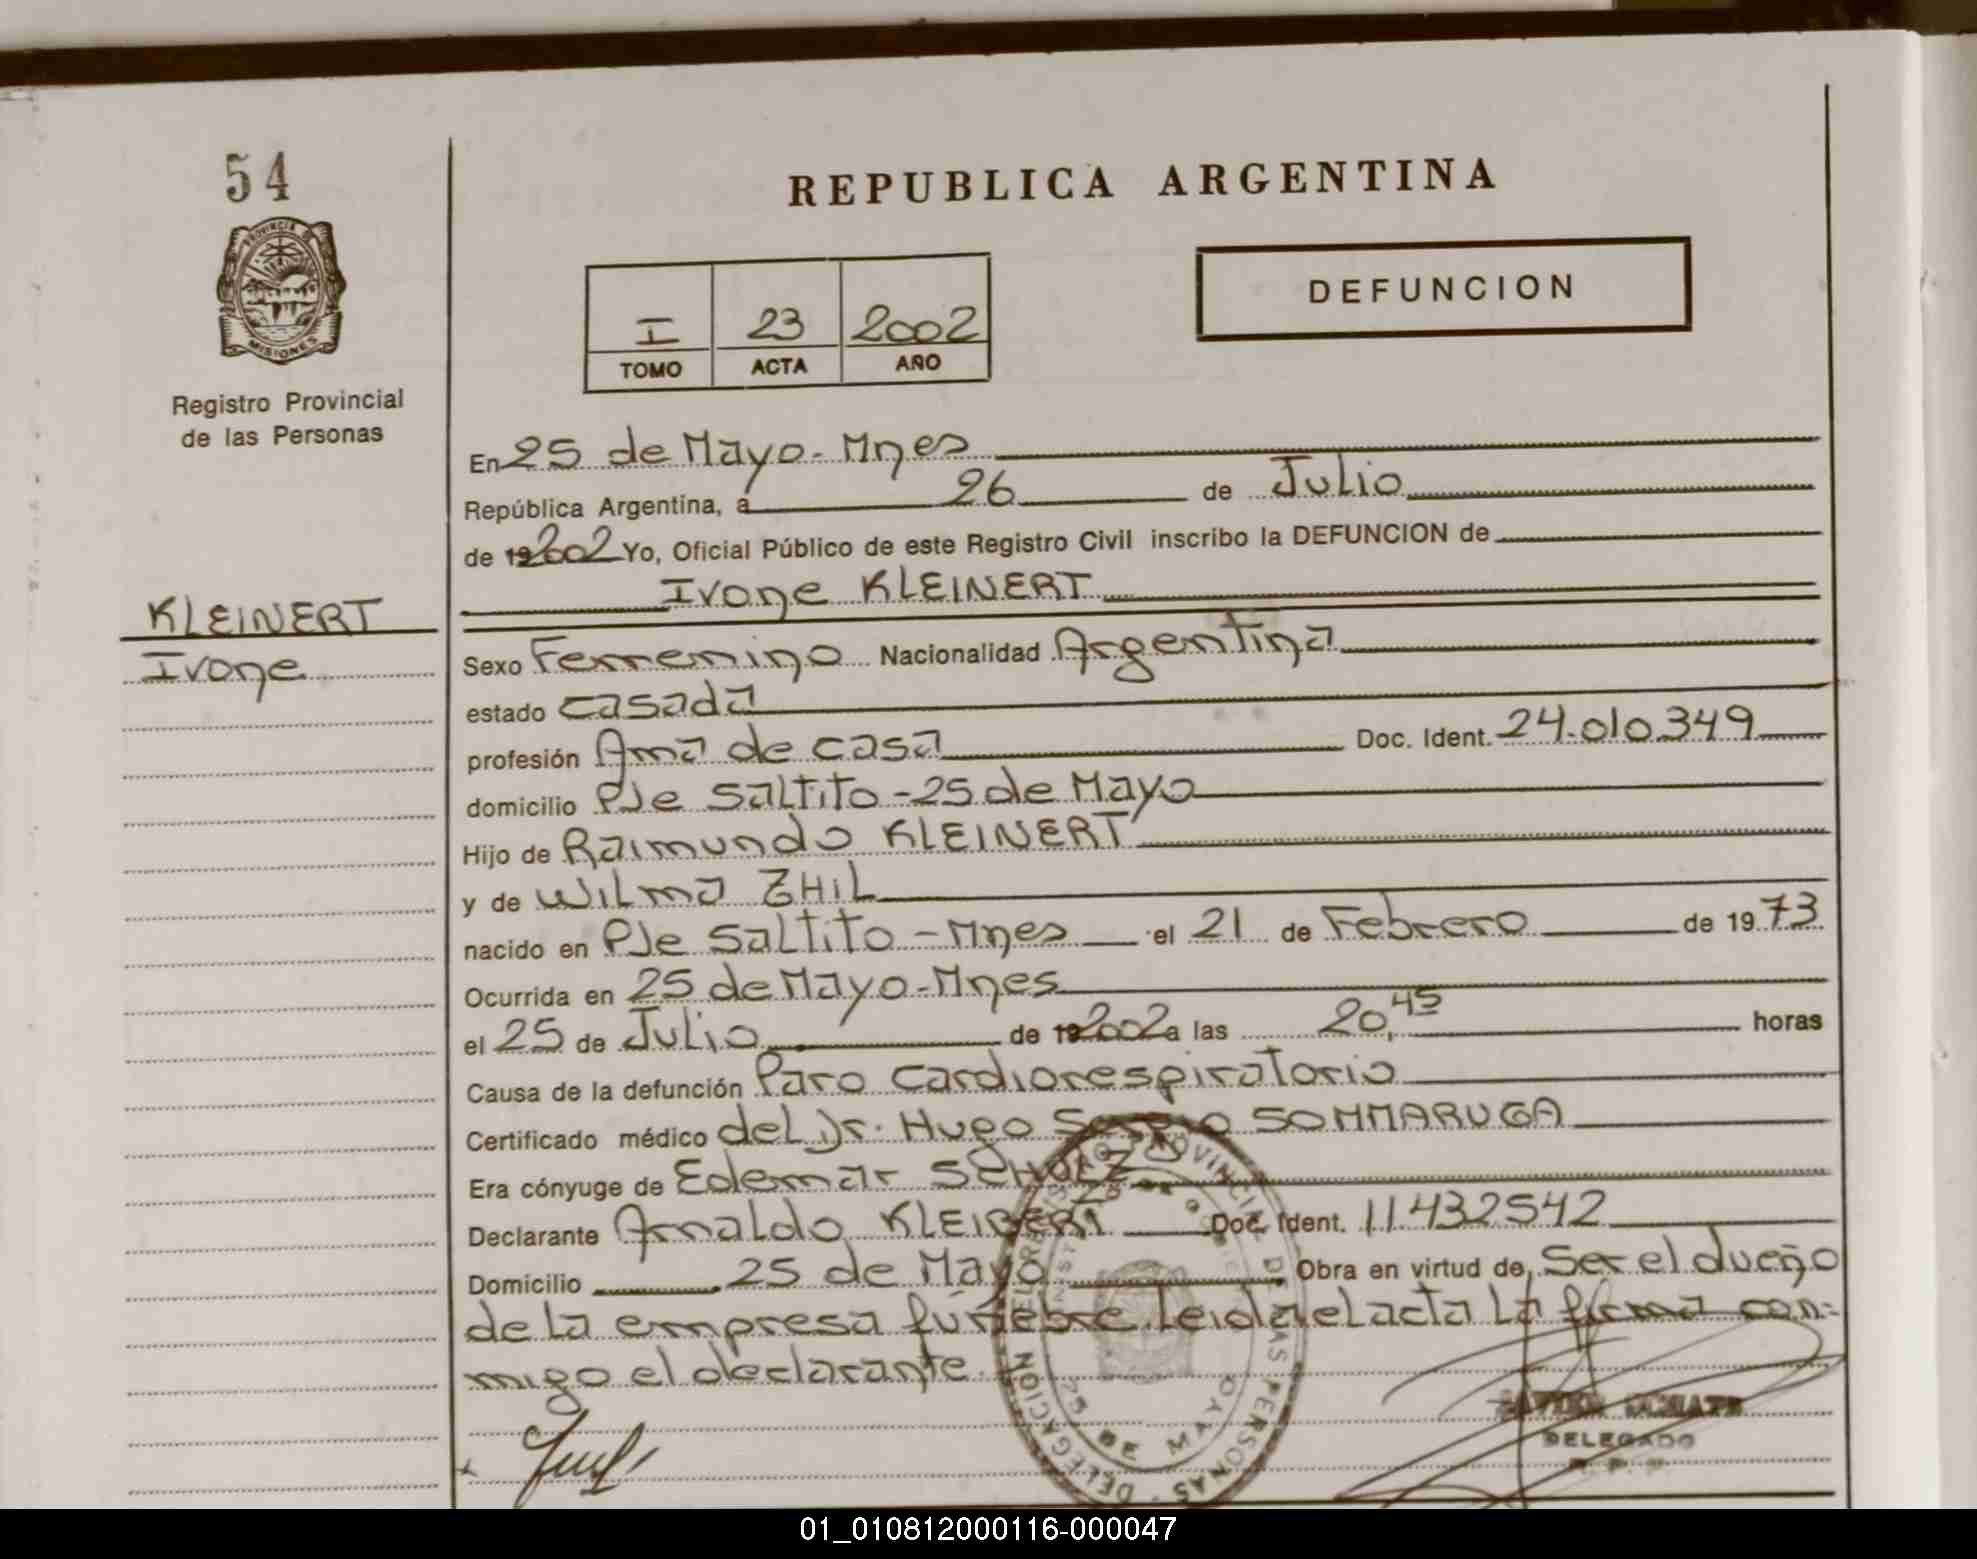 54
PROVINCIA DE
MISIONES
Registro Provincial
de las Personas
KLEINERT
Ivone
REPUBLICA ARGENTINA
I 23 2002
TOMO ACTA AÑO
DEFUNCION
En 25 de Mayo - Mnes
República Argentina, a 26 de Julio
de 192002 Yo, Oficial Público de este Registro Civil inscribo la DEFUNCION de
Ivone KLEINERT
Sexo Femenino Nacionalidad Argentina
estado casada
profesión Ama de casa Doc. Ident. 24.010.349
domicilio PJe Saltito - 25 de Mayo
Hijo de Raimundo KLEINERT
y de Wilma ZHIL
nacido en PJe Saltito - Mnes el 21 de Febrero de 1973
Ocurrida en 25 de Mayo - Mnes
el 25 de Julio de 192002 a las 20,45 horas
Causa de la defunción Paro cardiorespiratorio
Certificado médico del Dr. Hugo Sergio SOMMARUGA
Era cónyuge de Edemar
Declarante Arnaldo KLEIBERT Doc. Ident. 11432542
Domicilio 25 de Mayo Obra en virtud de, Ser el dueño
de la empresa fúnebre. Leida el acta la firma con-
migo el declarante
DELEGACION 25 DE MAYO
DELEGADO
01_010812000116-000047